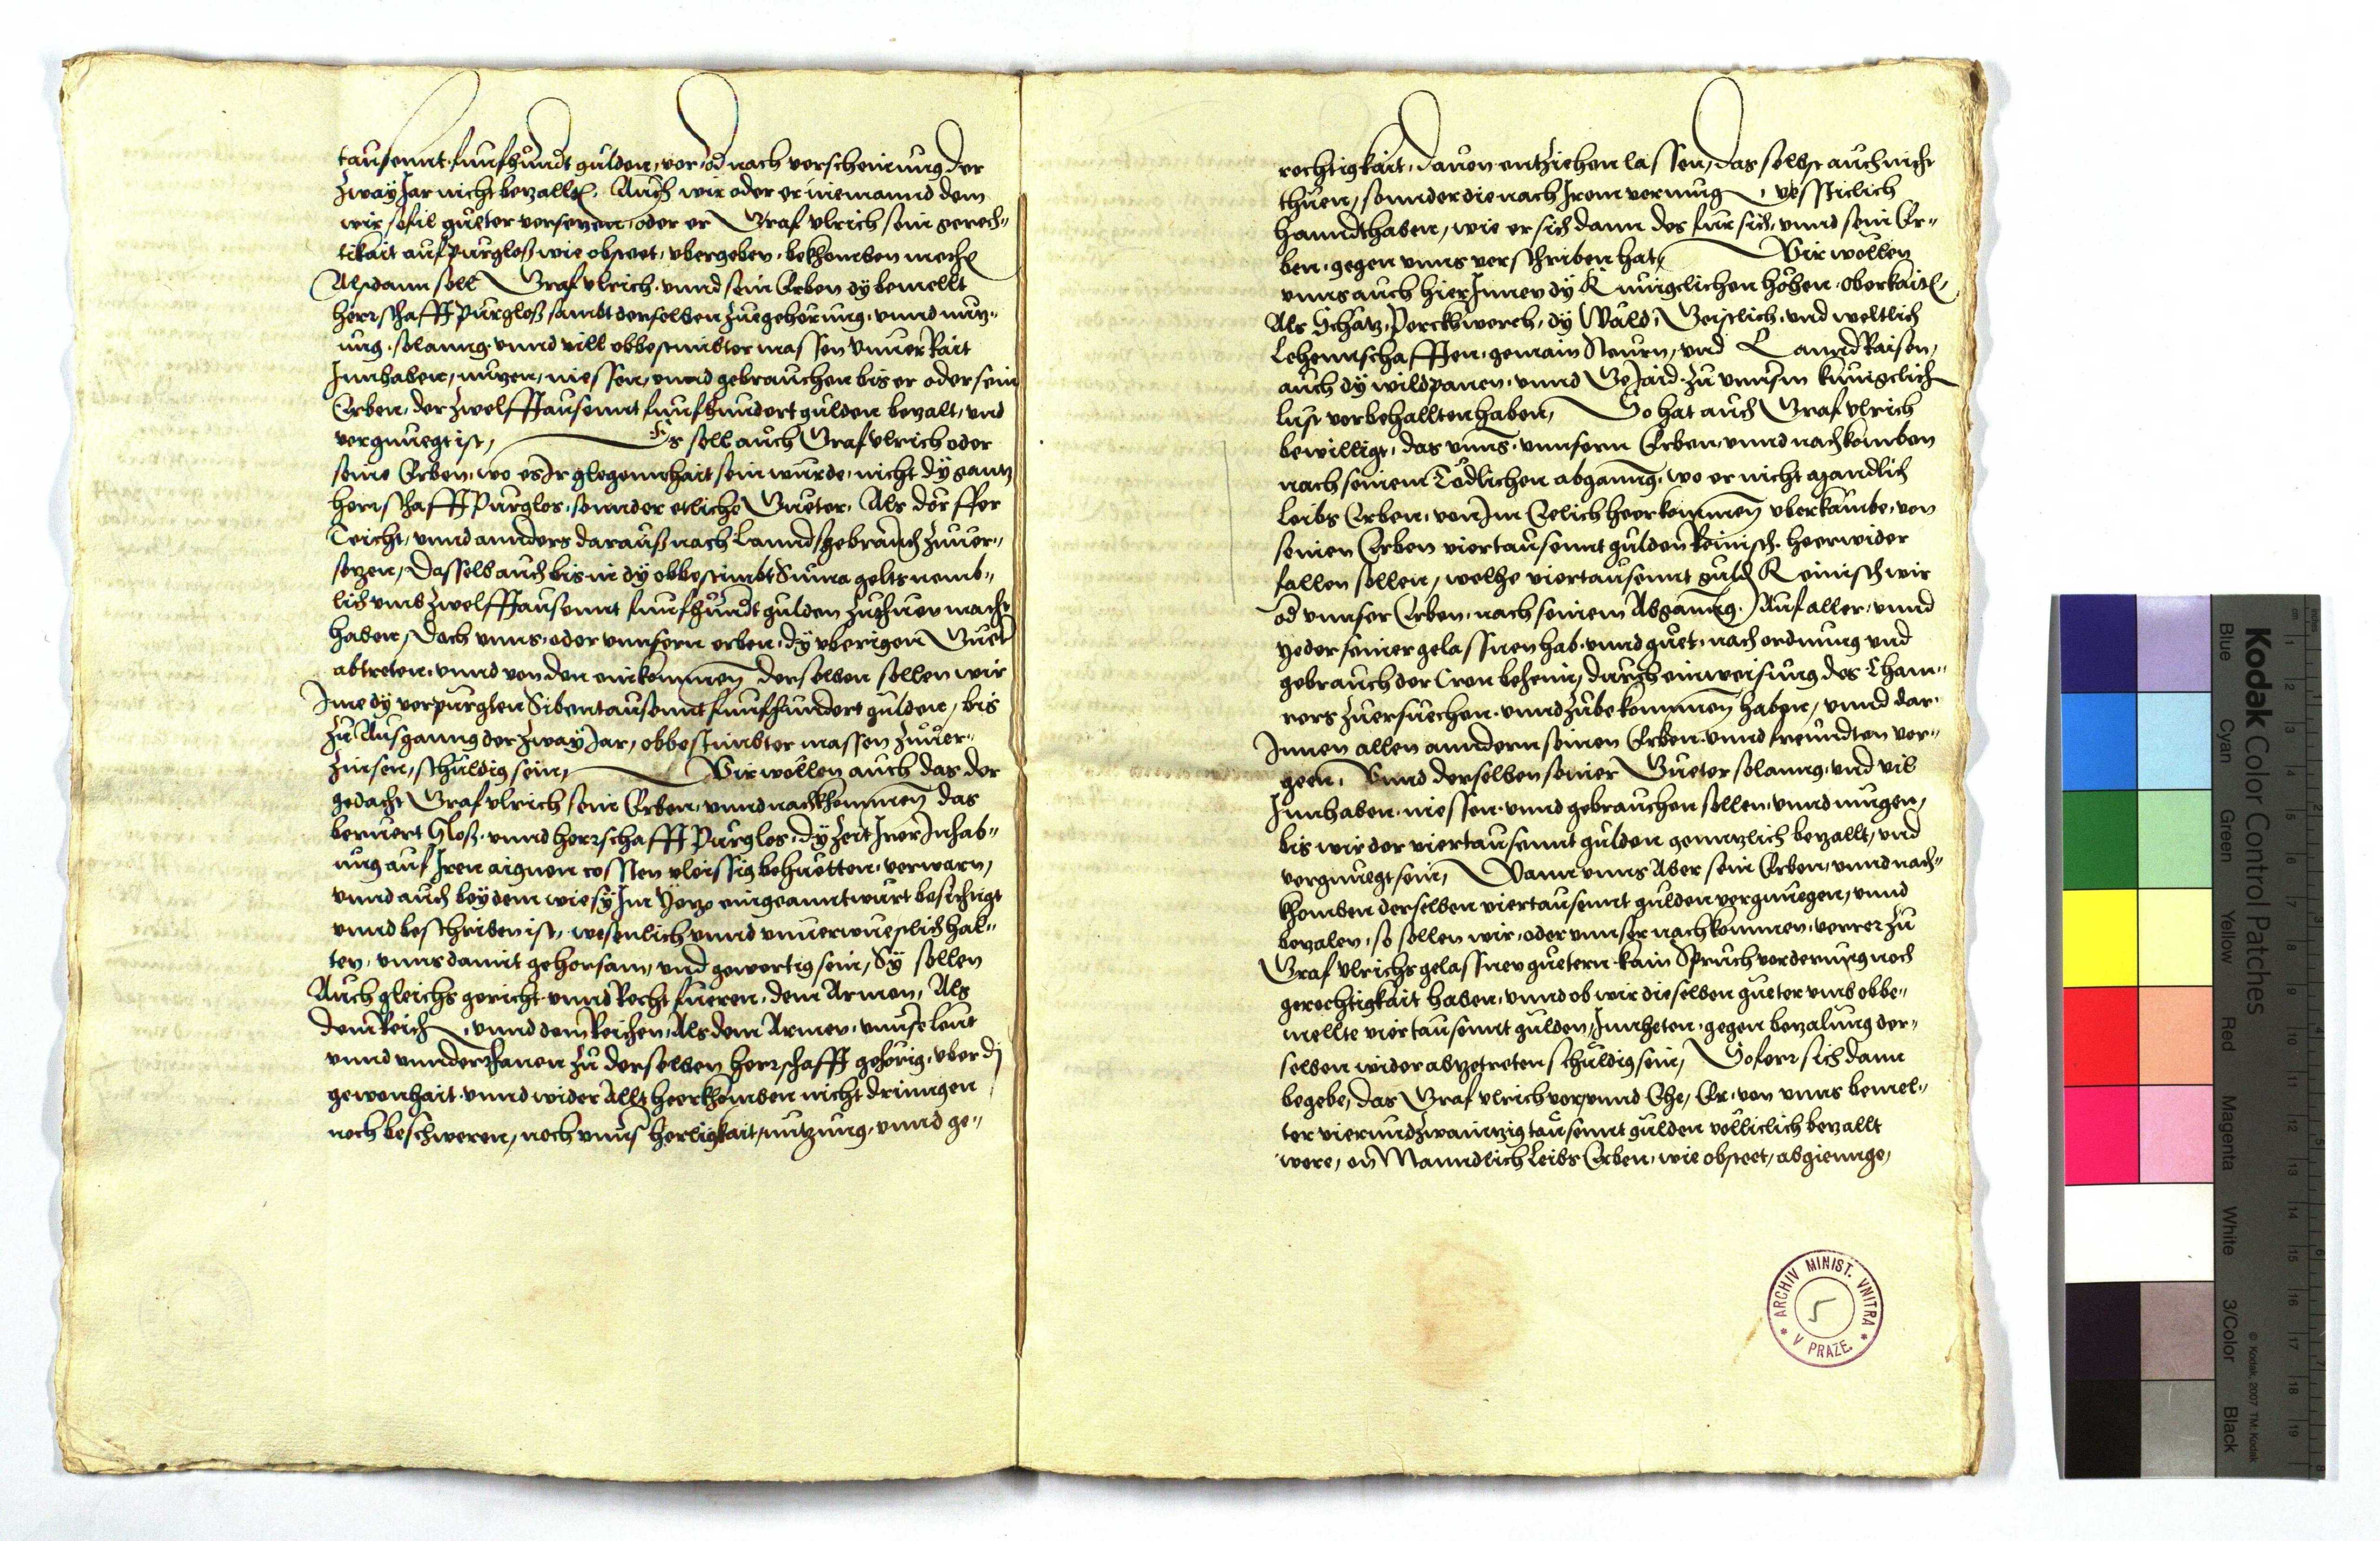 tausennt funfhundt gulden, vor od nach verscheinung der
zway Jar nicht bezallt. Auch wir oder er niemannd dem
wir sofil gueter versetzen, oder er Graf vlrich sein gerech-
tikait auf purgloß wie obsteet, vbergeben, bekhomben mechte
Alsdann soll Graf vlrich vnnd sein Erben dy bemellt
herrschafft purgloß sambt derselben zuegehorung, vnnd nutz-
ung, solanng vnnd vill obbestimbter massen vnuerkait
Innhaben, nutzen, niessen, vnnd gebrauchen bis er oder sein
Erben, der zwelfftausennt funfhundert gulden bezalt, vnd
vergnuegt ist, Es soll auch Graf vlrich oder
seine Erben, wo es Ir glegennhait sein wurde, nicht dy gantz
herrschafft Purglos, sonnder etliche Gueter, Als dörffer
Teicht, vnnd annders darauß nach Lanndsgebrauch zuuer-
setzen, Dasselb auch bis in dy obbestimbt Suma gelts nemb-
lich vmb zwelfftausennt funfhundt gulden zuthuen macht
haben, Doch vnns, oder vnnsern erben, dy vberigen Guet
abtreten, vnnd von den einkommen derselben sollen wir
Ime dy verpurgten Sibentausennt funfhundert gulden, bis
zu Ausganng der zway Jar, obbestimbter massen zuuer-
zinsen, schuldig sein, Wir wöllen auch das der
gedacht Graf vlrich sein Erben, vnnd nachkhommen das
beruert Sloß, vnnd herrschafft Purglos, dy zeit Irer Inhab-
ung auf Iren aignen cossten vleissig behuetten, verwarn,
vnnd auch bey dem wie sy Im yetzo eingeanntwurt besichtigt
vnnd beschriben ist, wesenlich vnnd vnuerwuestlich hal-
ten, vnns damit gehorsam, vnd gewertig sein, Sy sollen
Auch gleichs gericht vnnd Recht fueren, dem Armen, Als
dem Reich, vnnd dem Reichen, Als dem Armen, vnnse leut
vnnd vnnderthanen zu derselben herrschafft gehörig, vber dj
gewonhait vnnd wider Allt heerkhomben nicht dringen
noch beschweren, noch vnns herligkait, nutzung, vnnd ge-
rechtigkait, dauon entziehen lassen, das selbst auch nicht
thuen, sonnder die nach Irem vermug, vessticlich
hanndthaben, wie er sich dann des fur sich, vnnd sein Er-
ben, gegen vnns verschriben hat, Wir wollen
vnns auch hierInnen dy Kunigclichen hohen oberkait,
Als Schätz, Perckhwerch, dy Wäld, Geistlich, vnd weltlich
Lehennschafften, gemain Steurn, vnd Lanndraisen,
auch dy wildpanen, vnnd Gejaid zu vnnsm kunigclich
lust vorbehallten haben, So hat auch Graf vlrich
bewilligt, das vnns, vnnsern Erben, vnnd nachkomben
nach seinem Tödlichen abganng, wo er nicht Mandlich
Leibs Erben, von Im Eelich heerkommen vberkambe, von
seinen Erben viertausennt gulden Reinisch heerwider
fallen sollen, welhe viertausennt guld Reinisch wir
od vnnser Erben, nach seinem Abganng, Auf aller, vnnd
yeder seiner gelassnen hab, vnnd guet, nach ordnung vnd
gebrauch der Cron behem, durch einweisung des Cham-
rers zuersuechen, vnnd zubekommen haben, vnnd dar-
Innen allen anndern seinen Erben, vnnd freundten vor-
geen, Vnnd derselben seiner Gueter solanng, vnd vil
Innhaben, niessen, vnnd gebrauchen sollen, vnnd mugen,
bis wir der viertausennt gulden genntzlich bezallt, vnd
vergnuegt sein, Wann vnns Aber sein Erben, vnnd nach-
khomben derselben viertausennt gulden vergnuegen, vnnd
bezalen, so sollen wir, oder vnnser nachkommen, verrer zu
Graf vlrichs gelassnen guetern kain Spruch vorderung noch
gerechtigkait haben, vnnd ob wir dieselben gueter vmb obbe-
mellte viertausennt gulden, Innheten, gegen bezalung der-
selben wider abzetreten schuldig sein, Sofern sich dann
begebe, das Graf vlrich vor, vnnd Ehe, Er, von vnns bemel-
ter vierundzwainntzig tausennt gulden volliclich bezallt
were, on Manndlich Leibs Erben, wie obsteet, abgiennge,
ARCHIV MINIST. VNITRA
V PRAZE
5
Kodak Color Control Patches
© Kodak, 2007 TM: Kodak
Blue Cyan Green Yellow Red Magenta White 3/Color Black